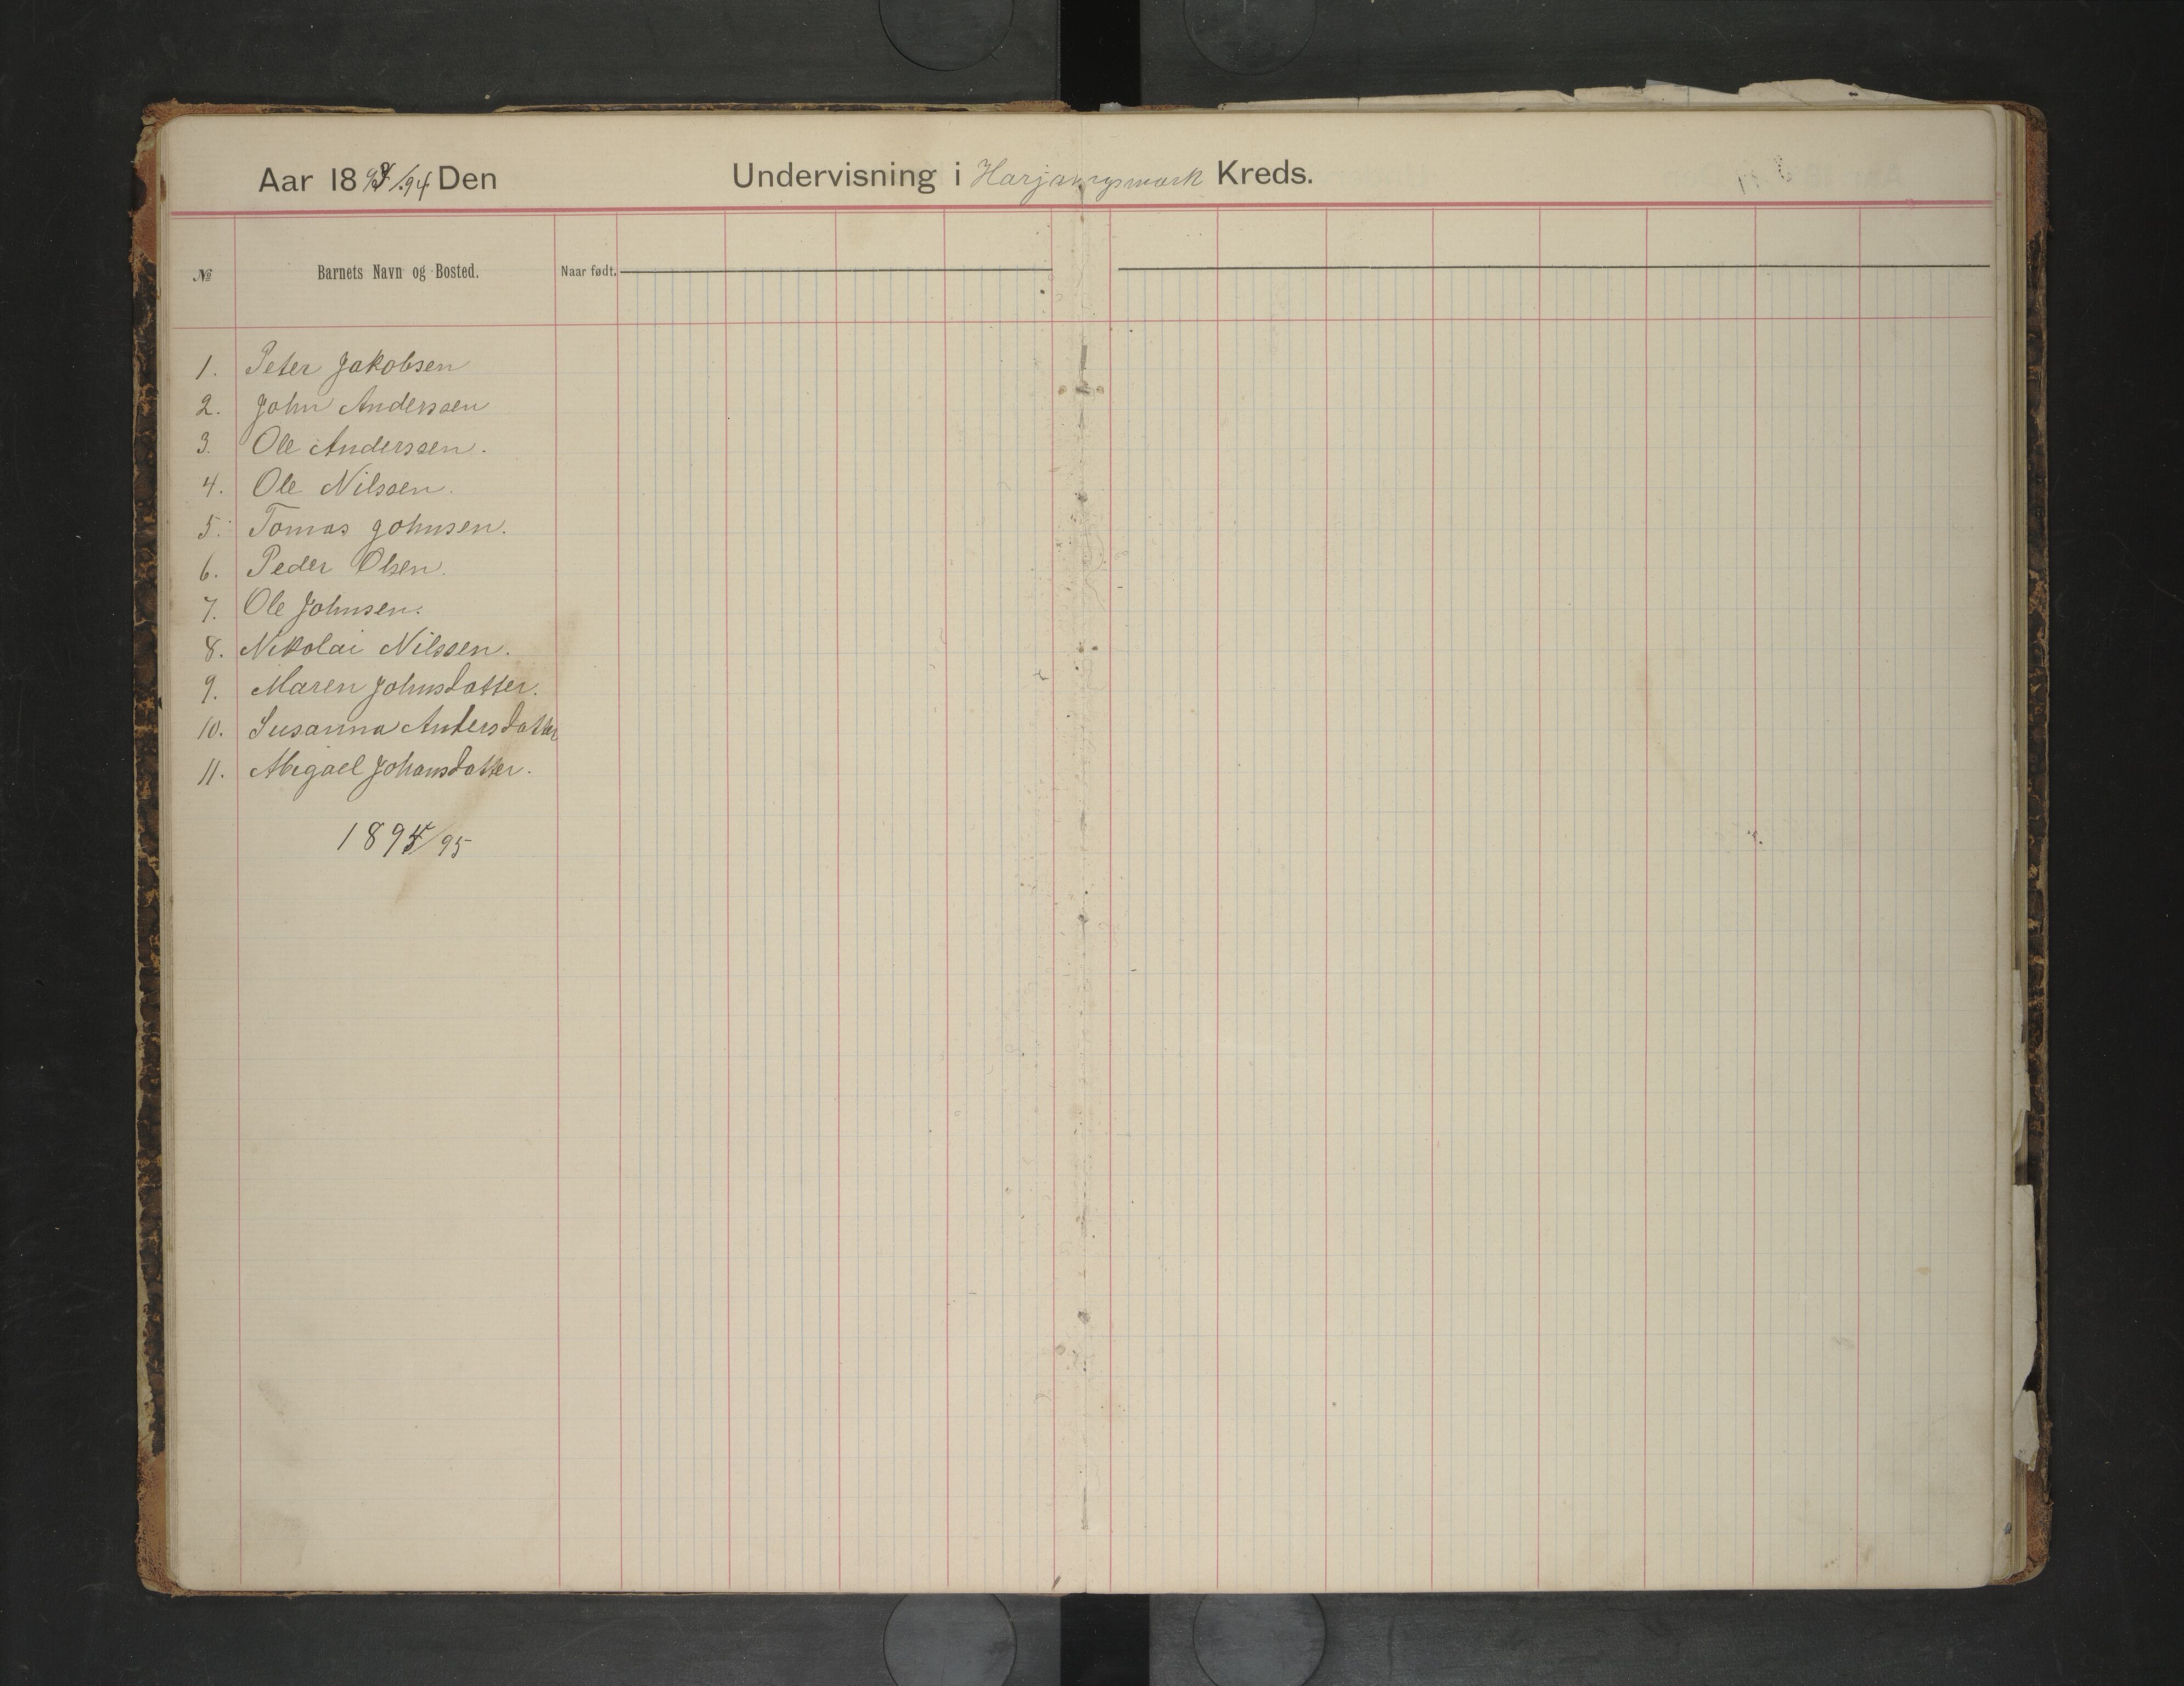 Aar 1893/94 Den Undervisning i Harjangsmark Kreds.
№ Barnets Navn og Bosted. Naar født.
1. Peter Jakobsen
2. John Anderssen
3. Ole Anderssen.
4. Ole Nilssen.
5. Tomas Johnsen.
6. Peder Olsen.
7. Ole Johnsen.
8. Nikolai Nilssen.
9. Maren Johnsdatter.
10. Susanna Andersdatter
11. Abigael Johansdatter.
1894/95